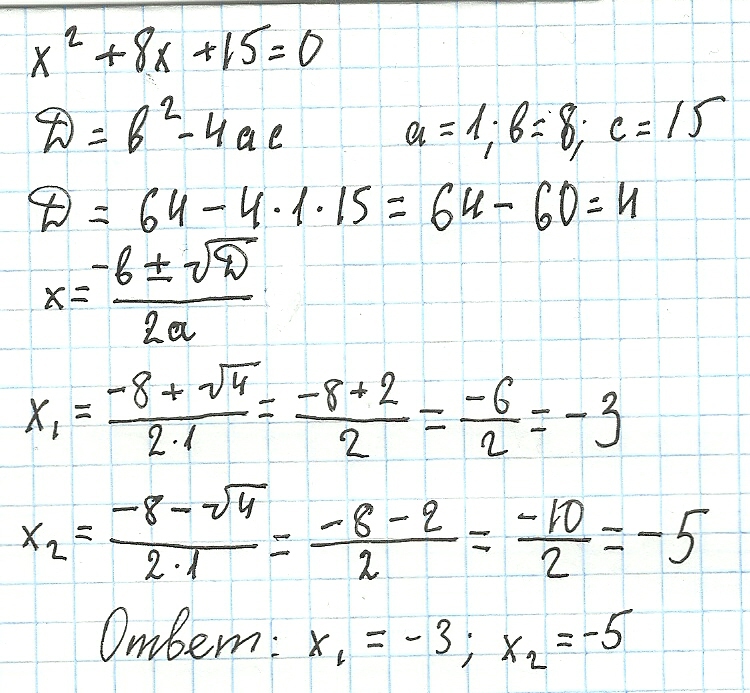 x² + 8x + 15 = 0
D = b² - 4ac a = 1; b = 8; c = 15
D = 64 - 4 · 1 · 15 = 64 - 60 = 4
x = (-b ± √D) / 2a
x₁ = (-8 + √4) / (2 · 1) = (-8 + 2) / 2 = -6 / 2 = -3
x₂ = (-8 - √4) / (2 · 1) = (-8 - 2) / 2 = -10 / 2 = -5
Ответ: x₁ = -3; x₂ = -5